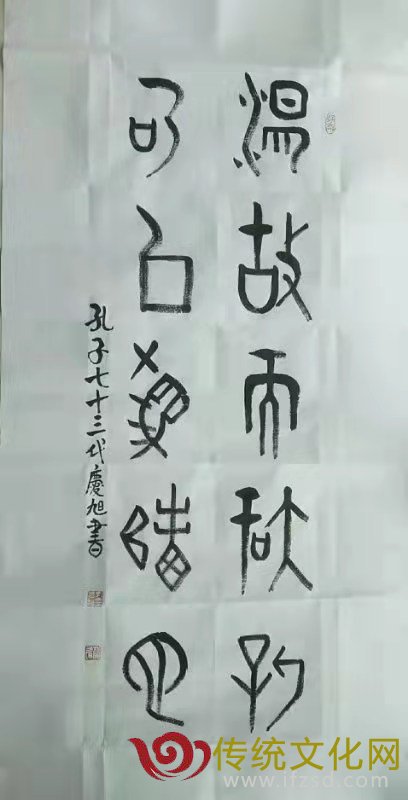 溫故而知新
可以為師
孔子七十三代慶旭書
传统文化网
www.ifzsd.com